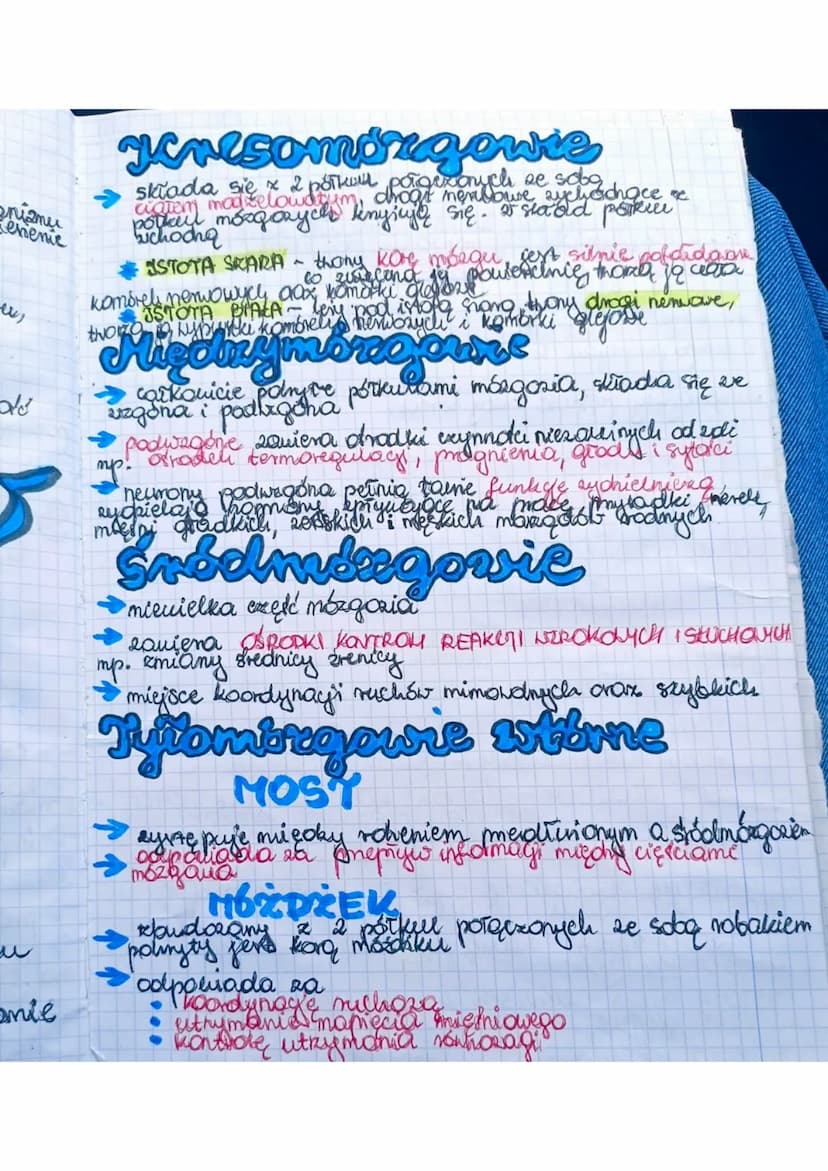 Kresomózgowie
→ składa się z 2 półkul połączonych ze sobą
ciałem modzelowatym, drogi nerwowe wychodzące z
półkul mózgowych krzyżują się. w skład półkul
wchodzą
* ISTOTA SZARA - tworzy korę mózgu, jest silnie pofałdowana
co zwiększa jej powierzchnię, tworzą ją ciała
komórek nerwowych oraz komórki glejowe
* ISTOTA BIAŁA - leży pod istotą szarą, tworzy drogi nerwowe,
tworzą ją wypustki komórek nerwowych i komórki glejowe
Międzymózgowie
→ całkowicie pokryte półkulami mózgowia, składa się ze
wzgórza i podwzgórza
→ podwzgórze zawiera ośrodki czynności niezależnych od woli
np. ośrodek termoregulacji, pragnienia, głodu i sytości
→ neurony podwzgórza pełnią także funkcję wydzielniczą
wydzielają hormony wpływające na pracę przysadki, nerek,
mięśni gładkich, żeńskich i męskich narządów rodnych
Śródmózgowie
→ niewielka część mózgowia
→ zawiera OŚRODKI KONTROLI REAKCJI WZROKOWYCH I SŁUCHOWYCH
np. zmiany średnicy źrenicy
→ miejsce koordynacji ruchów mimowolnych oraz szybkich
Tyłomózgowie wtórne
MOST
→ występuje między rdzeniem przedłużonym a śródmózgowiem
→ odpowiada za przepływ informacji między częściami
mózgowia
MÓŻDŻEK
→ zbudowany z 2 półkul połączonych ze sobą robakiem
pokryty jest korą móżdżku
→ odpowiada za
• koordynację ruchową
• utrzymanie napięcia mięśniowego
• kontrolę utrzymania równowagi